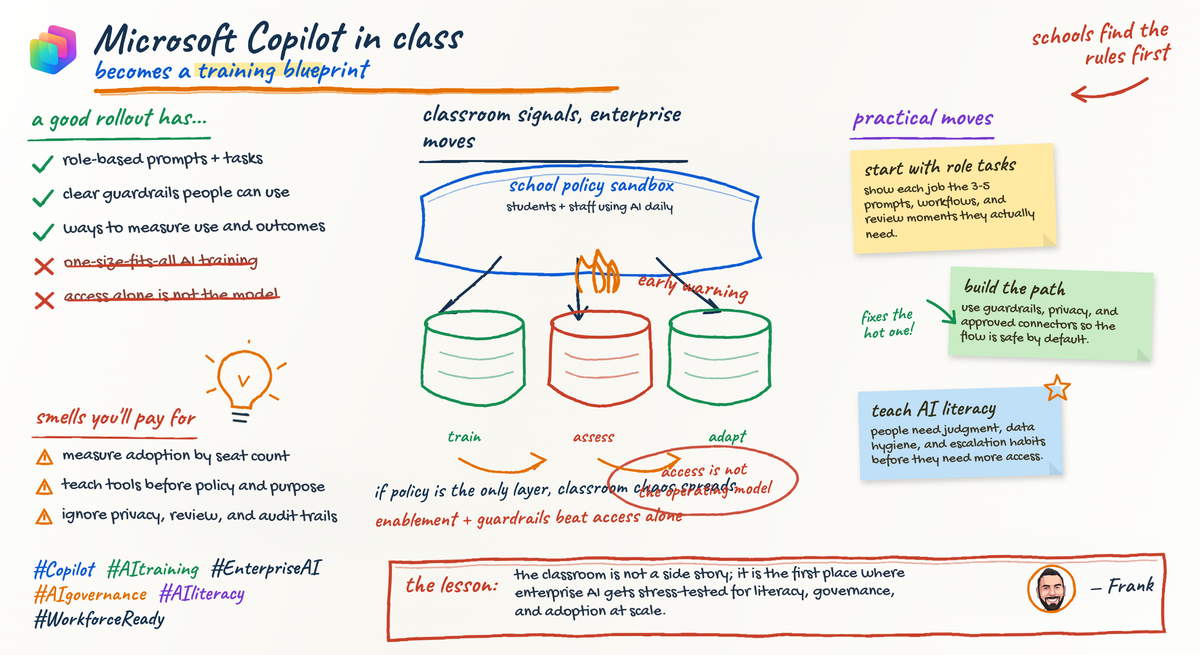 Microsoft Copilot in class
becomes a training blueprint
schools find the
rules first
a good rollout has...
role-based prompts + tasks
clear guardrails people can use
ways to measure use and outcomes
one-size-fits-all AI training
access alone is not the model
smells you'll pay for
measure adoption by seat count
teach tools before policy and purpose
ignore privacy, review, and audit trails
#Copilot #AItraining #EnterpriseAI
#AIgovernance #AIliteracy
#WorkforceReady
classroom signals, enterprise
moves
school policy sandbox
students + staff using AI daily
early warning
train
assess
adapt
access is not
the operating model
if policy is the only layer, classroom chaos spreads
enablement + guardrails beat access alone
practical moves
start with role tasks
show each job the 3-5
prompts, workflows, and
review moments they actually
need.
fixes the
hot one!
build the path
use guardrails, privacy, and
approved connectors so the
flow is safe by default.
teach AI literacy
people need judgment, data
hygiene, and escalation habits
before they need more access.
the lesson:
the classroom is not a side story; it is the first place where
enterprise AI gets stress-tested for literacy, governance,
and adoption at scale.
— Frank